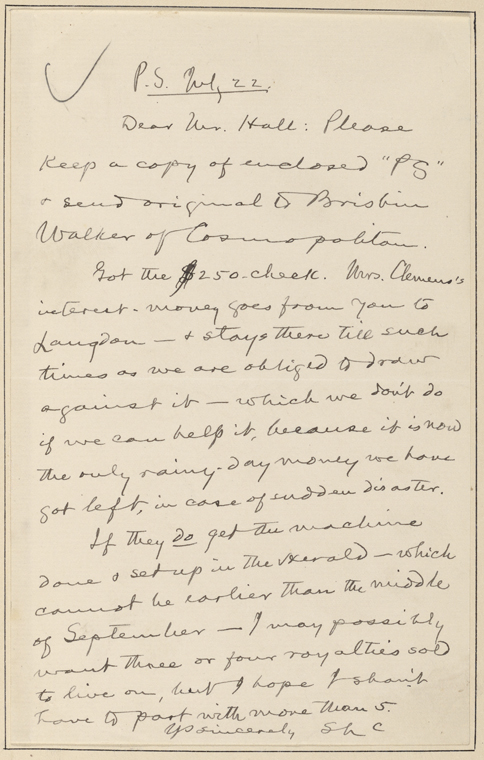 P.S. July 22.
Dear Mr. Hall: Please
keep a copy of enclosed "PS"
& send original to Brisbin
Walker of Cosmopolitan.
Got the $250-check. Mrs. Clemens's
interest-money goes from you to
Langdon — & stays there till such
times as we are obliged to draw
against it — which we don't do
if we can help it, because it is now
the only rainy-day money we have
got left, in case of sudden disaster.
If they do get the machine
done & set up in the Herald — which
cannot be earlier than the middle
of September — I may possibly
want three or four royalties sold
to live on, but I hope I shan't
have to part with more than 5.
Yrs sincerely SLC